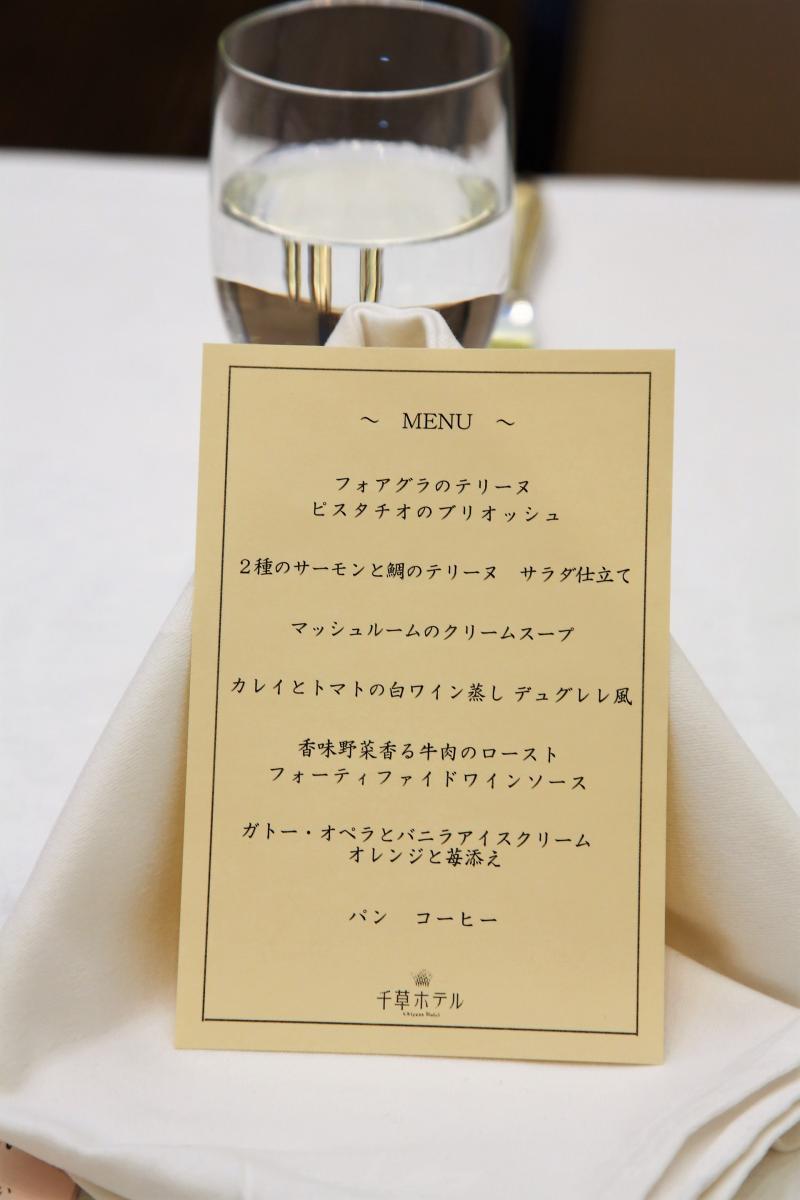 ～　MENU　～
フォアグラのテリーヌ
ピスタチオのブリオッシュ
２種のサーモンと鯛のテリーヌ　サラダ仕立て
マッシュルームのクリームスープ
カレイとトマトの白ワイン蒸し デュグレレ風
香味野菜香る牛肉のロースト
フォーティファイドワインソース
ガトー・オペラとバニラアイスクリーム
オレンジと苺添え
パン　コーヒー
千草ホテル
Chigusa Hotel